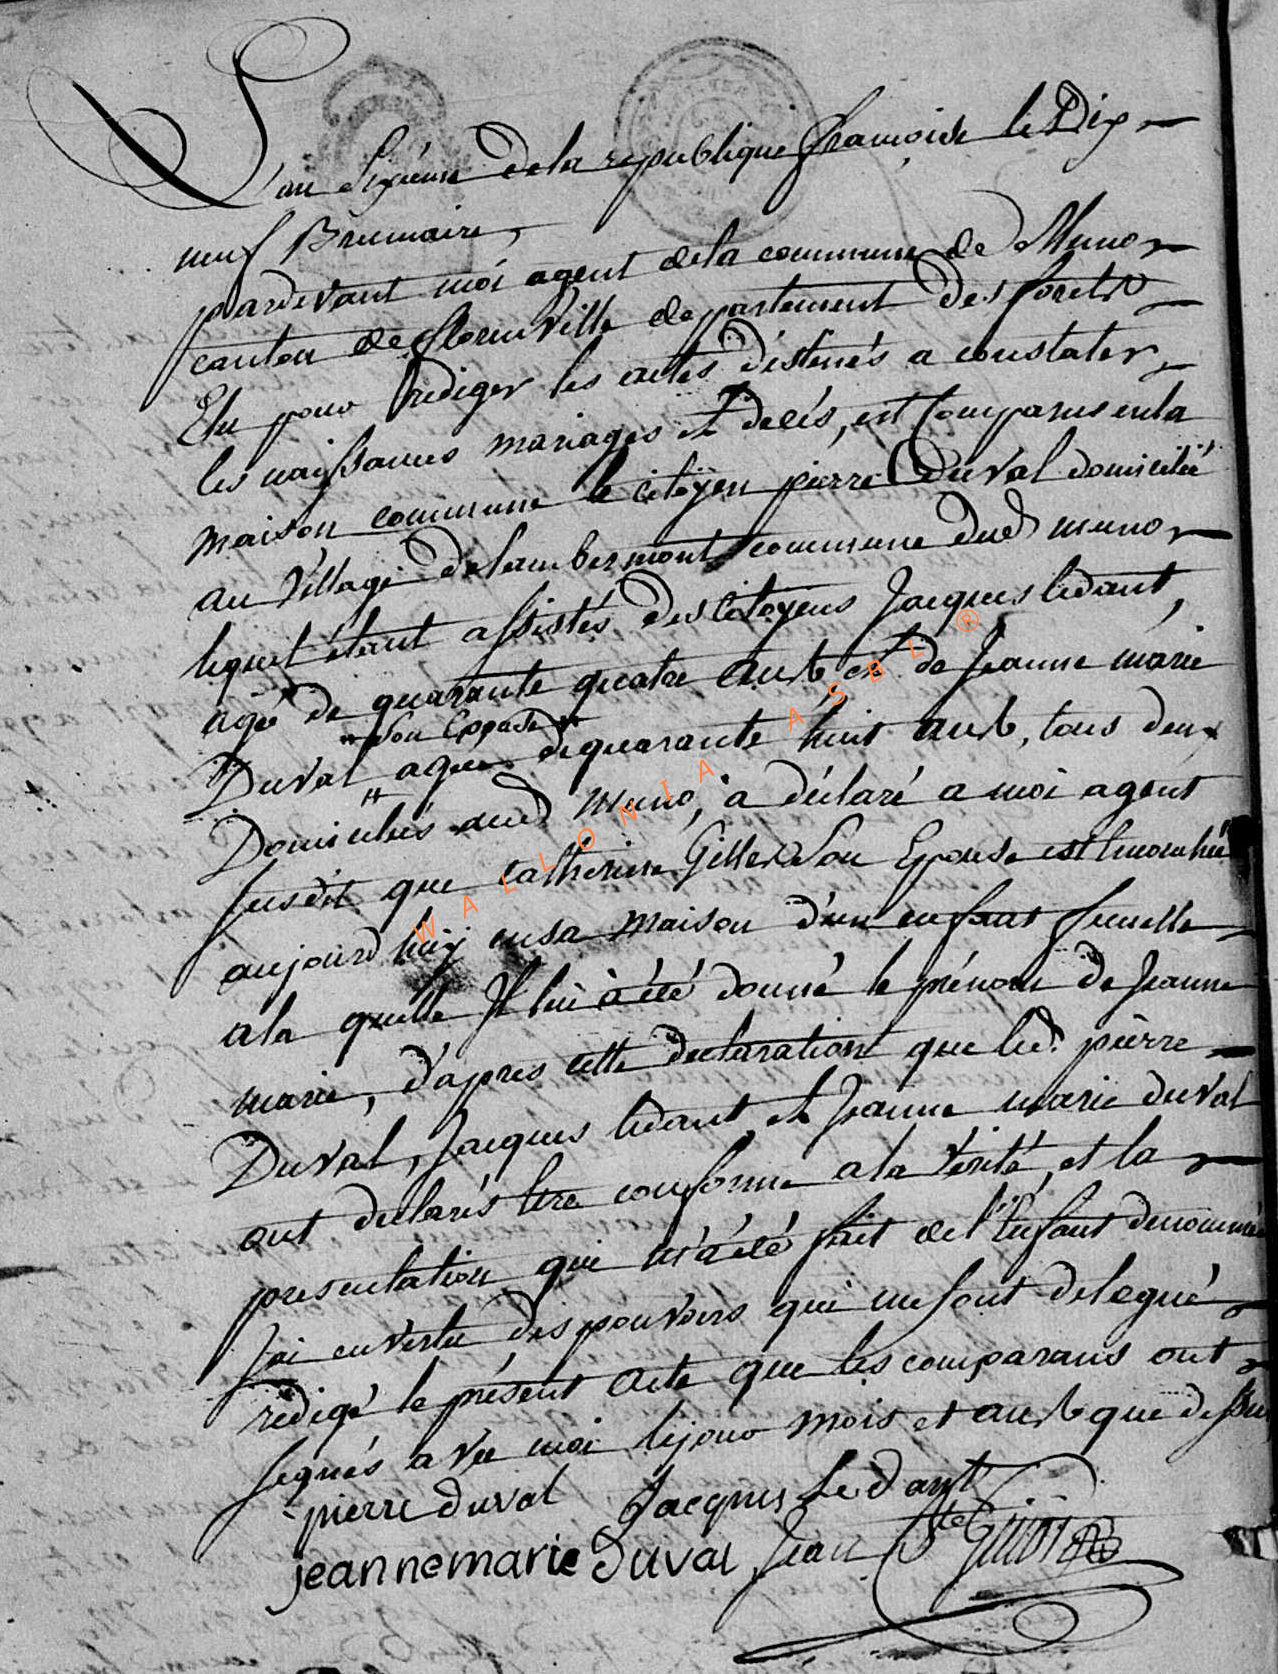 L'an sixiéme de la republique françoise le Dix
neuf Brumaire,
pardevant moi agent de la commune de Muno
canton de florenville departement des forets
Elu pour rediger les actes déstinés a constater
les naissances mariages et decés, est comparu en la
maison commune le citoÿen piérre Duval domicilié
au Village de lambermont commune dud muno
lequel étant assistés des Citoyens Jacques ledant,
agé de quarante quatre ans et de Jeanne marie
" Son Epouse "
Duval " agée de quarante huit ans, tous deux
Domiciliés aud Muno, à déclaré a moi agent
susdit que catherine Gilles Son Epouse est accouchée
aujourd'huÿ en sa maison d'un enfant femelle
a la quelle Il lui à été donné le prénom de Jeanne
marie, d'apres cette declaration que led. piérre
Duval, Jacques ledant, et Jeanne marie duval
ont declarés être conforme a la Vérité, et la
presentation qui m'a été fait de l'Enfant denommé
J'ai en vertu des pouvoirs qui me sont delegué
rédigé le présent acte que les comparans ont
signés avec moi le jour mois et ans que dessus
pierre duval Jacques Ledant
jeanne marie Duval Jean
WALLONIA ASBL ®